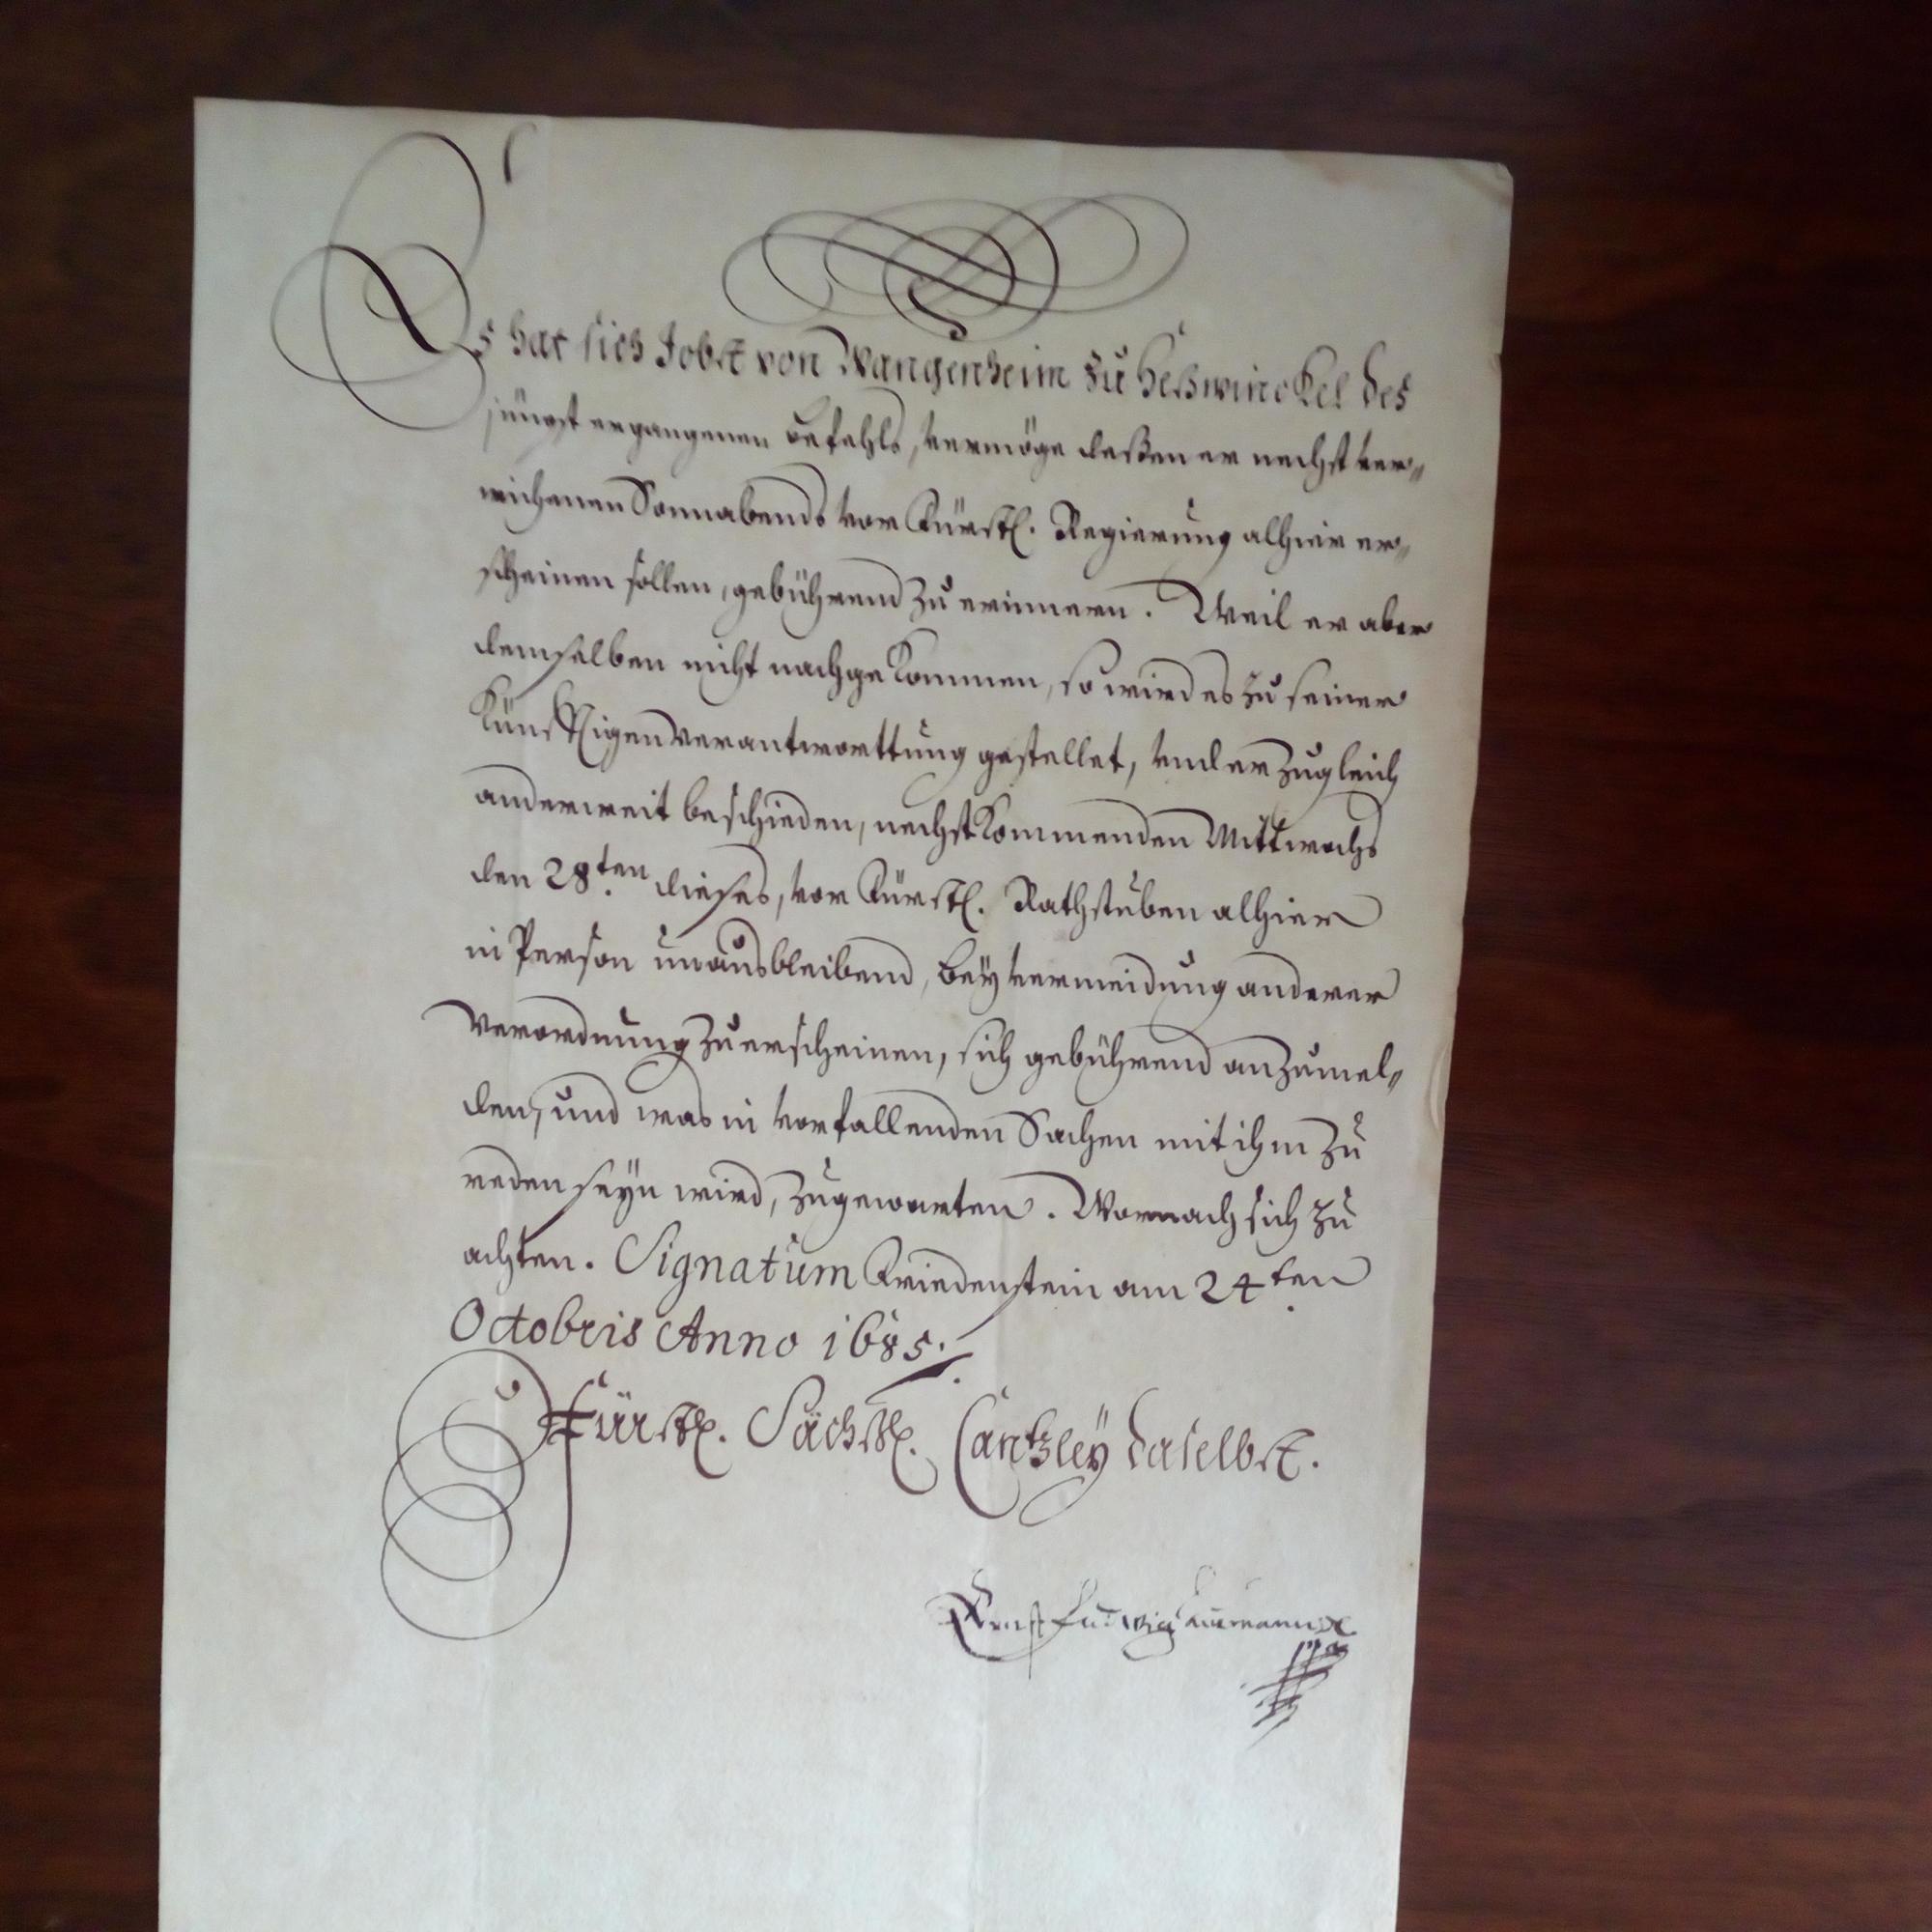 Es hat sich Jobst von Wangenheim zu Heßwinckel des
jüngst ergangenen Befehls, vermöge deßen er nechst ver-
wichenen Sonnabends vor Fürstl. Regierung alhier er-
scheinen sollen, gebührend zu erinnern. Weil er aber
demselben nicht nachgekommen, so wird es zu seiner
künfftigen verantworttung gestellet, und er zugleich
anderweit beschieden, nechstkommenden Mittwochs
den 28ten dieses, vor Fürstl. Rathstuben alhier
in Person unausbleibend, bey vermeidung anderer
Verordnung zu erscheinen, sich gebührend anzumel-
den, und was in vorfallenden Sachen mit ihm zu
reden seyn wird, zugewarten. Wornach sich zu
achten. Signatum Friedenstein am 24ten
Octobris Anno 1685.
Fürstl. Sächßl. Cantzley daselbst.
Ernst Ludwig